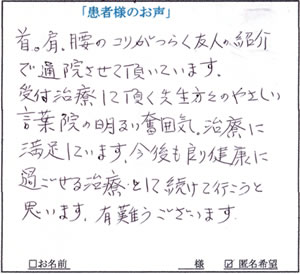 「患者様のお声」
首。肩、腰のコリがつらく友人の紹介
で通院させて頂いています。
受付治療して頂く先生方とのやさしい
言葉院の明るい奮囲気、治療に
満足しています。今後も良り健康に
過ごせる治療をして続けて行こうと
思います。有難うございます。
□お名前 様 ☑匿名希望